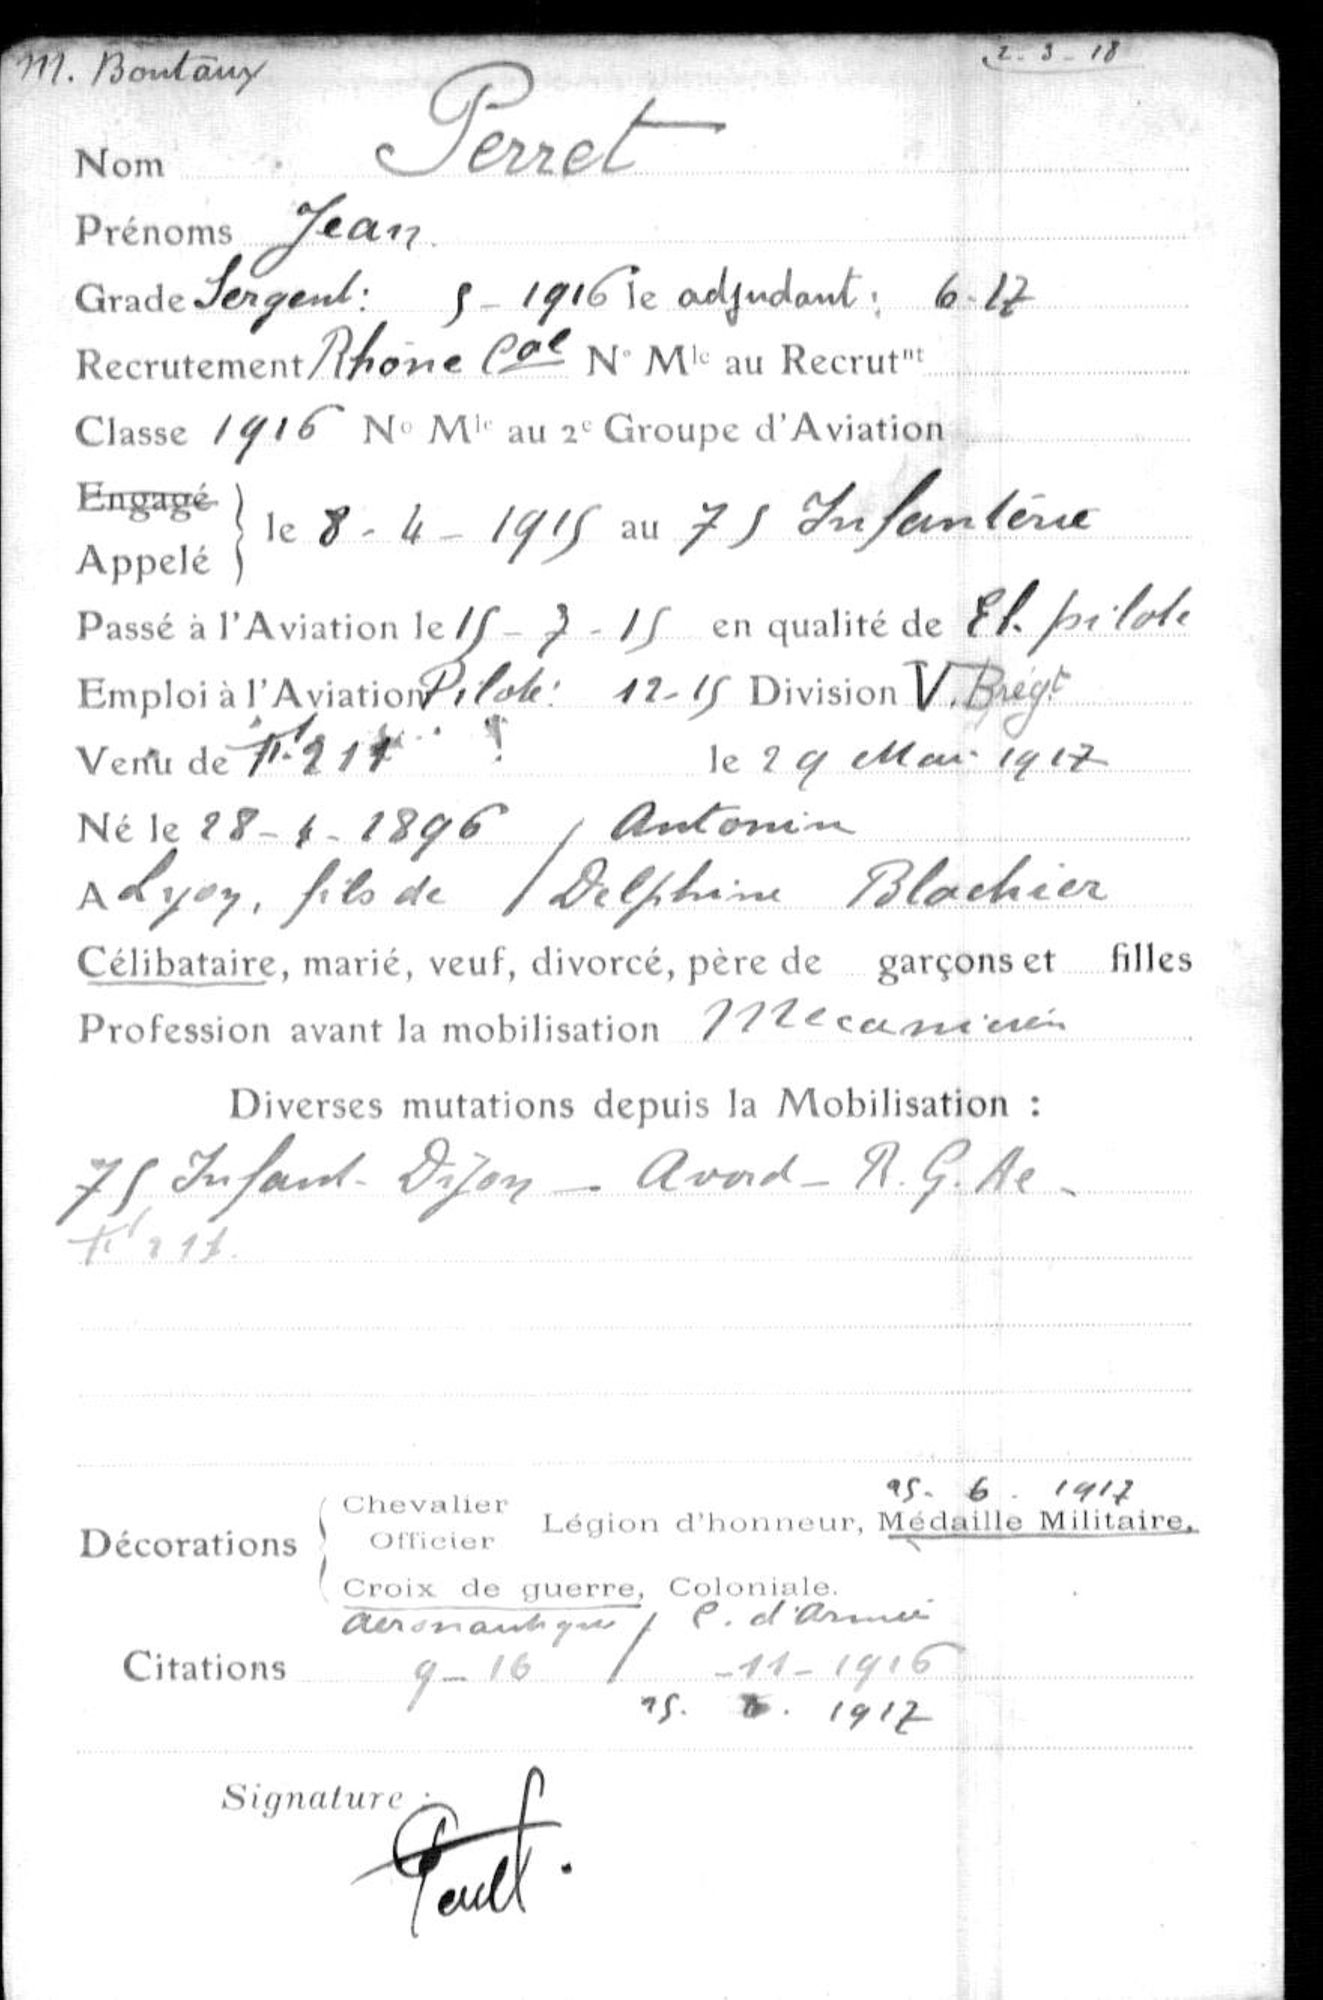 M. Boutaux 2-3-18
Nom Perret
Prénoms Jean
Grade Sergent: 5-1916 le adjudant: 6-17
Recrutement Rhône Cal N° Mle au Recrutnt
Classe 1916 N° Mle au 2e Groupe d'Aviation
Engagé
le 8-4-1915 au 75 Infanterie
Appelé
Passé à l'Aviation le 15-7-15 en qualité de El. pilote
Emploi à l'Aviation Pilote: 12-15 Division V. Brégt
Venu de 211 le 29 Mai 1917
Né le 28-4-1896 / Antonin
A Lyon, fils de / Delphine Blachier
Célibataire, marié, veuf, divorcé, père de garçons et filles
Profession avant la mobilisation Mecanicien
Diverses mutations depuis la Mobilisation :
75 Infant- Dijon - Avord - R.G.Ae -
211.
25. 6. 1917
Chevalier
Légion d'honneur, Médaille Militaire,
Décorations Officier
Croix de guerre, Coloniale.
aeronautique / C. d'Armée
Citations 9-16 / -11-1916
25. 6. 1917
Signature :